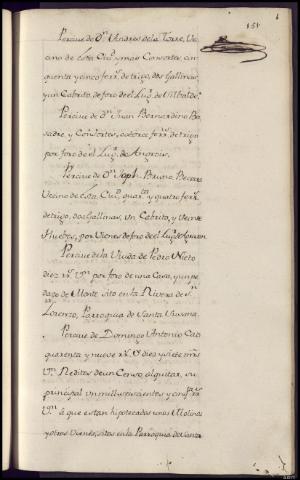 151
Percive de Dn. Andres de la Torre, Ve
cino de esta Ciud. y mas Consortes, cin
quenta y cinco ferrs. de trigo, dos Gallinas,
y un Cabrito, de foro de el Lug. de
Percive de Dn. Juan Bernardino Bo
sadre y Consortes, catorce ferrs. de trigo
por foro de el Lug. de
Percive de Dn. Joph. Bruno Becerra
Vecino de esta Ciud. quarta. y quatro ferrs.
de trigo, dos Gallinas, un Cabrito, y Veinte
Huebos, por Vienes de foro de el Lug. de
Percive de la Viuda de Pedro Nieto
diez rs. Vn. por foro de una Casa, y un pe
dazo de Monte sito en la Rivera de Sn.
Lorenzo, Parroquia de Santa Susana.
Percive de Domingo Antonio Cao
quarenta y nueve rs. y diez y siete mrs.
Vn. Reditos de un Censo alquitar, su
principal un mill seiscientos y cinqta.
Vn. á que estan hipotecadas unos Molinos
y otros Vienes, sitos en la Parroquia de Santa